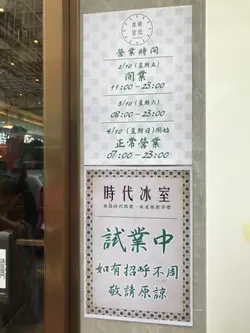 時代
冰室
營業時間
2/10 (星期五)
開業
11:00 - 23:00
3/10 (星期六)
08:00 - 23:00
4/10 (星期日) 開始
正常營業
07:00 - 23:00
時代冰室
試業中
如有招呼不周
敬請原諒